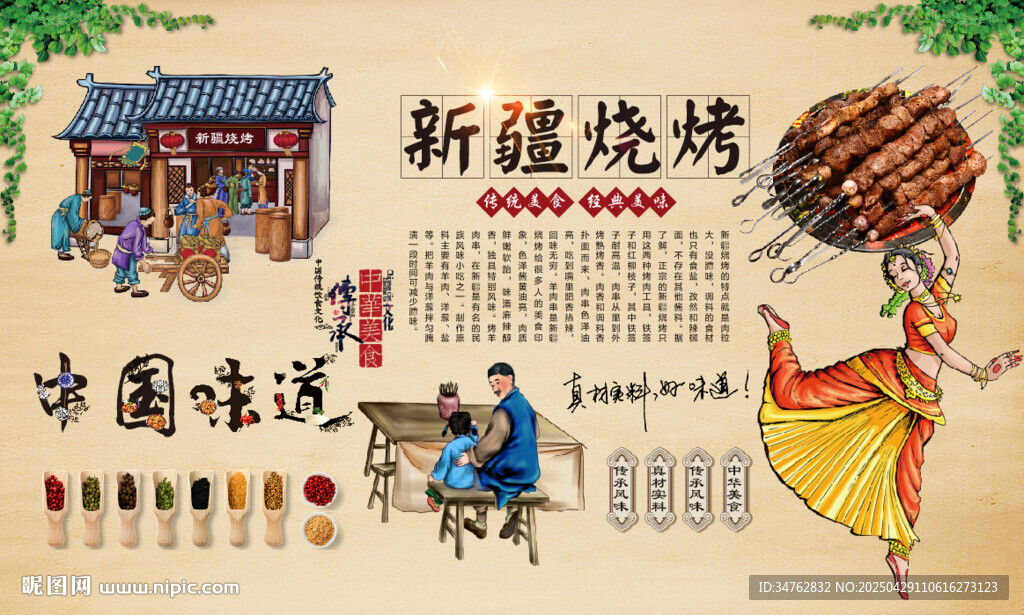 新疆烧烤
新疆烧烤
传统美食 经典美味
新疆烧烤的特点就是肉粒
大，没膻味，调料的食材
也只有食盐，孜然和辣椒
面，不存在其他酱料。据
了解，正宗的新疆烧烤只
用这两种烤肉工具，铁签
子和红柳枝子，其中铁签
子耐高温，肉串从里到外
烤熟烤香。肉香和调料香
扑面而来，肉串色泽油
亮，吃到嘴里肥香热辣，
回味无穷。羊肉串是新疆
烧烤给很多人的美食印
象，色泽酱黄油亮，肉质
鲜嫩软胎，味道麻辣醇
香，独具特别风味。烤羊
肉串，在新疆是有名的民
族风味小吃之一。制作原
料主要有羊肉、洋葱、盐
等。把羊肉与洋葱拌匀腌
渍一段时间可减少膻味。
中国传统饮食文化
传承
中华美食
文化
中国味道
真材实料,好味道!
传承风味
真材实料
传承风味
中华美食
昵图网 www.nipic.com
ID:34762832 NO:20250429110616273123